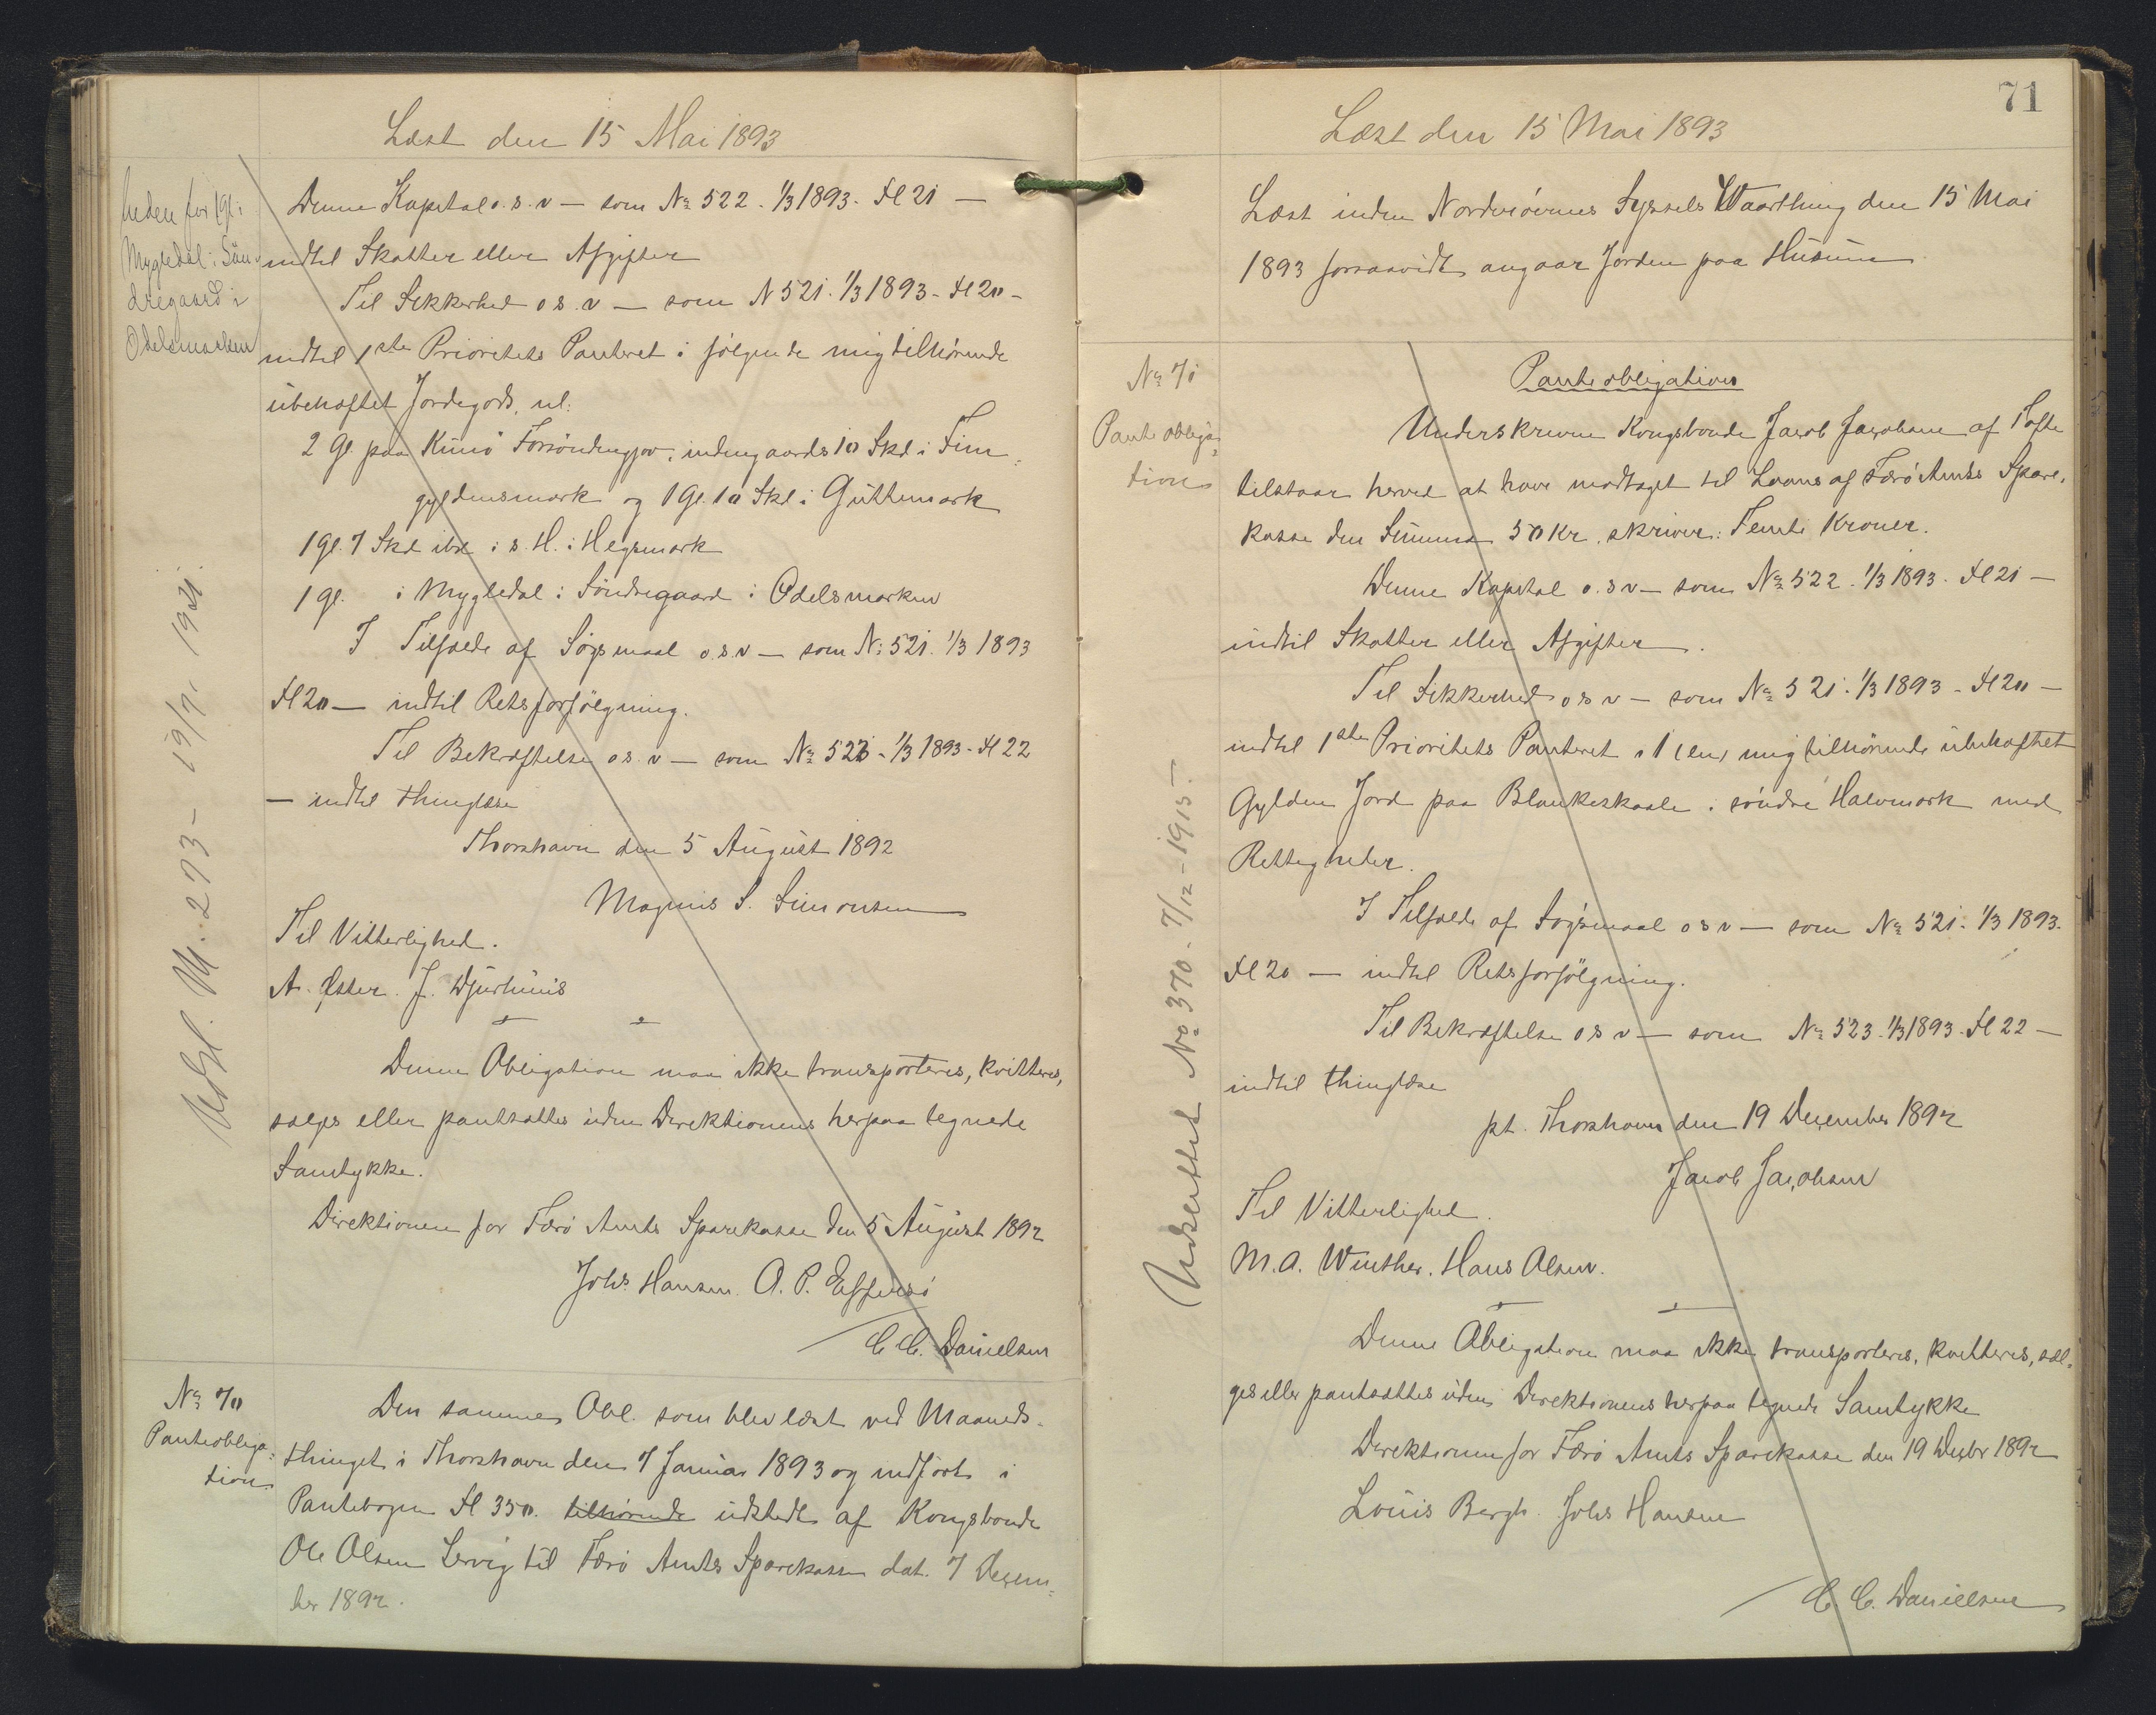 Læst den 15 Mai 1893
Denne Kapital o. s. v — som No 522. 1/3 1893. Fl 21 —
indtil Skatter eller Afgifter
Til Sikkerhed o s. v — som N 521. 1/3 1893 - Fl 20 -
indtil 1ste Prioritets Panteret i følgende mig tilhörende
ubehæftet Jordegods, nl:
2 Gl. paa Kunö Forsöndengjov, indengaards 10 Skd i Fim=
gyldensmark og 1 Gl. 10 Skd i Guttemark
1 Gl. 7 Skd ibd i s. H. i Hegsmark
1 Gl. i Mygledal i Söndregaard i Odelsmarken
I Tilfælde af Søgsmaal o. s. v — som N: 521. 1/3 1893
Fl 20 — indtil Retsforfölgning.
Til Bekræftelse o s. v — som No 523 - 1/3 1893 - Fl 22
— indtil thinglæse
Thorshavn den 5 August 1892
Magnus S. Simonsen
Til Vitterlighed.
A. Öster. J. Djurhuus
Denne Obligation maa ikke transporteres, kvitteres,
sælges eller pantsættes uden Direktionens herpaa tegnede
Samtykke.
Direktionen for Færö Amts Sparekasse den 5 August 1892
Johs. Hansen. O. P. Effersö
C. C. Danielsen
heden for 1 Gl. i
Mygledal i Sön=
dregaard i
Odelsmarken
Udsl. No. 273 - 19/7. 1921.
No 70
Panteobliga=
tion
Den samme Obl. som blev læst ved Maaneds-
thinget i Thorshavn den 7 Januar 1893 og indfört i
Pantebogen Fl 350. tilhörende udstedt af Kongsbonde
Ole Olsen Lervig til Færö Amts Sparekasse dat. 7 Decem=
ber 1892.
71
Læst den 15 Mai 1893
Læst inden Norderöernes Syssels Vaarthing den 15 Mai
1893 forsaavidt angaar Jorden paa Husum
No 71
Panteobliga=
tion
Panteobligation
Underskrevne Kongsbonde Jacob Jacobsen af Tofte
tilstaar herved at have modtaget til Laans af Færö Amts Spare,
kasse den Summa 50 Kr. skriver: Femti Kroner.
Denne Kapital o. s v — som No 522. 1/3 1893. Fl 21 —
indtil Skatter eller Afgifter.
Til Sikkerhed o s v — som No 521. 1/3 1893 - Fl 20 —
indtil 1ste Prioritets Panteret i 1 (en) mig tilhörende ubehæftet
Gylden Jord paa Blankeskaale i söndre Halvmark med
Rettigheder.
I Tilfælde af Søgsmaal o s v — som No 521. 1/3 1893.
Fl 20 — indtil Retsforfölgning.
Til Bekræftelse o s v — som No 523. 1/3 1893. Fl 22 —
indtil thinglæse
pt. Thorshavn den 19 December 1892
Jacob Jacobsen
Til Vitterlighed.
M. A. Winther. Hans Olsen.
Denne Obligation maa ikke transporteres, kvitteres, sæl=
ges eller pantsættes uden Direktionens herpaa tegnede Samtykke
Direktionen for Færö Amts Sparekasse den 19 Decbr 1892
Louis Bergh. Johs Hansen
C. C. Danielsen
Udslettet No 370 - 7/12 - 1915 -